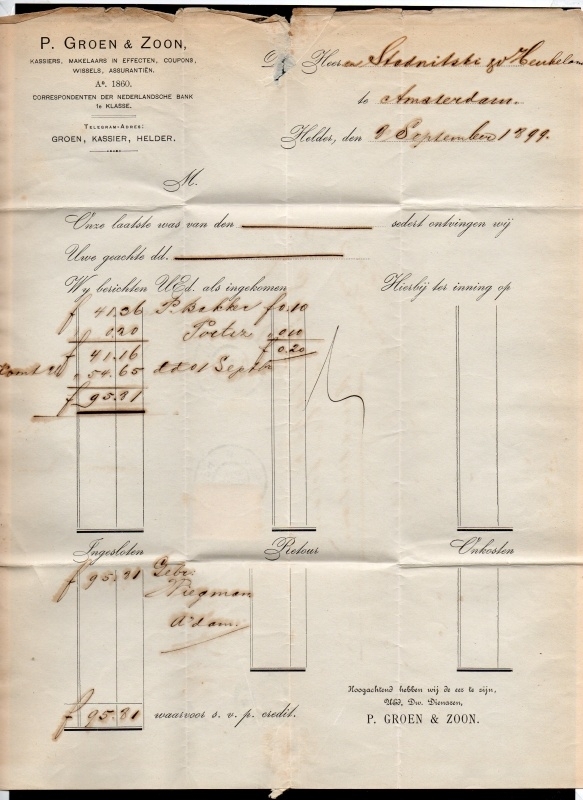 P. GROEN & ZOON,
KASSIERS, MAKELAARS IN EFFECTEN, COUPONS,
WISSELS, ASSURANTIËN.
Aº. 1860.
CORRESPONDENTEN DER NEDERLANDSCHE BANK
1e KLASSE.
TELEGRAM-ADRES:
GROEN, KASSIER, HELDER.
Heeren Stodnitski & v Heukelom
te Amsterdam.
Helder, den 9 September 1899.
M.
Onze laatste was van den sedert ontvingen wij
Uwe geachte dd.
Wij berichten UEd. als ingekomen Hierbij ter inning op
f 41.36 P. Bakker f 0.10
0.20 Porto 0.10
f 41.16 f 0.20
54.65 dd 01 Septb
f 95.81
Ingesloten Retour Onkosten
f 95.81 Gebr.
Wiegman
A'dam
f 95.81 waarvoor s. v. p. credit.
Hoogachtend hebben wij de eer te zijn,
UEd. Dw. Dienaren,
P. GROEN & ZOON.